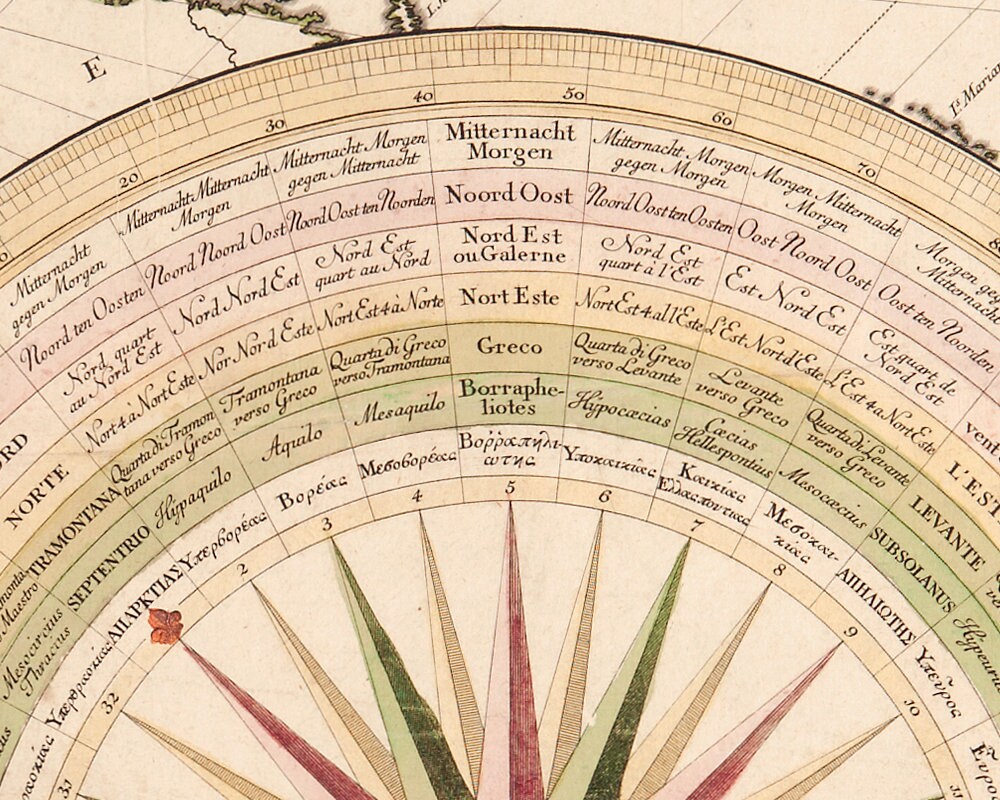 E
Is. Marian
20
30
40
50
60
70
Mitternacht
gegen Morgen
Mitternacht Mitternacht
Morgen
Mitternacht Morgen
gegen Mitternacht
Mitternacht
Morgen
Mitternacht Morgen
gegen Morgen
Morgen Mitternacht
Morgen
Morgen geg
Mitternacht
Noord ten Oosten
Noord Noord Oost
Noord Oost ten Noorden
Noord Oost
Noord Oost ten Oosten
Oost Noord Oost
Oost ten Noorden
ORD
Nord quart
au Nord Est
Nord Nord Est
Nord Est
quart au Nord
Nord Est
ou Galerne
Nord Est
quart à l'Est
Est Nord Est
Est quart de
Nord Est
vent
NORTE
Nort 4 à Nort Este
Nor Nord Este
Nort Est 4 à Norte
Nort Este
Nort Est 4 al l'Este
L'Est Nort d'Este
L'Est 4 a Nort Este
L'EST
TRAMONTANA
Quarta di Tramon
tana verso Greco
Tramontana
verso Greco
Quarta di Greco
verso Tramontana
Greco
Quarta di Greco
verso Levante
Levante
verso Greco
Quarta di Levante
verso Greco
LEVANTE
Maestro
SEPTENTRIO
Hypaquilo
Aquilo
Mesaquilo
Borraphe-
liotes
Hypocæcias
Cæcias
Hellespontius
Mesocæcius
SUBSOLANUS
Hypeuru
Mesocircius
Thracius
ΑΠΑΡΚΤΙΑΣ
Ὑπερβορέας
Βορέας
Μεσοβορέας
Βοῤῥαπηλι-
ώτης
Ὑποκαικίας
Καικίας
Ἑλλησποντίας
Μεσοκαι-
κίας
ΑΠΗΛΙΩΤΗΣ
Ὑπεῦρος
Εὖρος
31
32
2
3
4
5
6
7
8
9
10
11